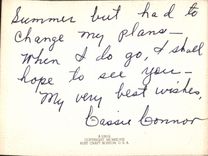 Summer but had to
change my plans—
When I do go, I shall
hope to see you—
My very best wishes,
Cassie Connor
RUST CRAFT BOSTON U.S.A.